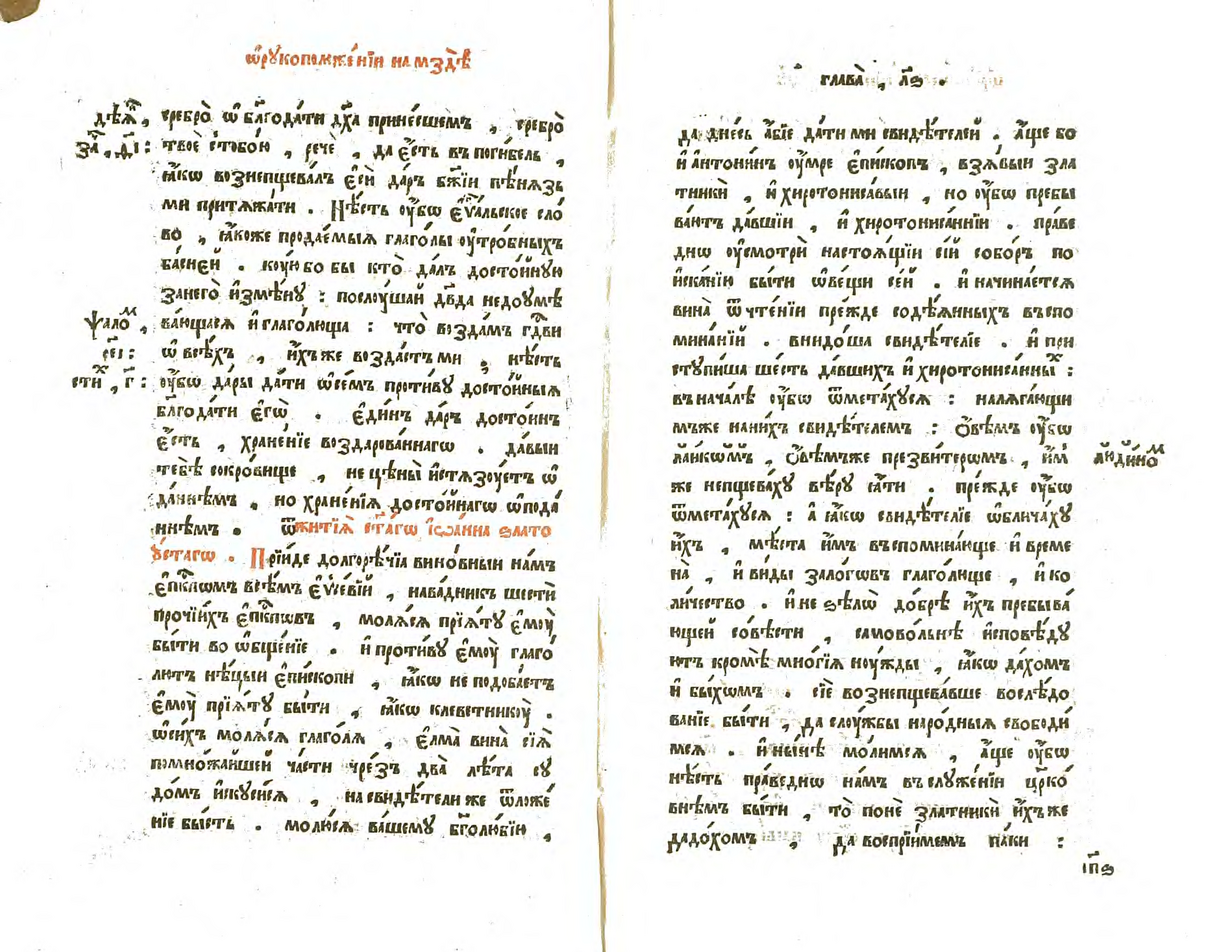 ѿрꙋкоположе́нїи на мздѣ̀
дѣѧ҃, сребро̀ ѡ҆ бл҃года́ти дх҃а прине́сшемъ , сребро̀
за҃, дı҃: твоѐ с̾тобо́ю , речѐ , да є҆́сть въ поги́бель ,
ꙗ҆́кѡ вознепщева́лъ є҆сѝ да́ръ бж҃їи пѣ́нѧзь
ми притѧжа́ти . Нѣ́сть ᲂу҆́бѡ є҆ѵⷢ҇льское сло́
во , ꙗ҆́коже продае́мыѧ глаго́лы ᲂу҆тро́бныхъ
ба́сней . кꙋ́ю бо бы кто̀ да́лъ досто́йнꙋю
занего̀ и҆змѣ́нꙋ : послꙋ́шай дв҃да недоꙋмѣ
ѱало́ⷨ , ва́ющасѧ и҆ глаго́люща : что̀ возда́мъ гдⷭ҇ви
реı҃: ѡ҆ всѣ́хъ , и҆́хже возда́стъ ми , нѣ́сть
сти́ⷯ , г҃: ᲂу҆́бѡ да́ры да́ти ѡ҆се́мъ проти́вꙋ досто́йныѧ
бл҃года́ти є҆гѡ̀ . є҆ди́нъ да́ръ досто́инъ
є҆́сть , хране́нїе воздарова́ннагѡ . да́выи
тебѣ̀ сокро́вище , не цѣны̀ и҆стѧзꙋ́етъ ѡ҆
да́ннѣмъ , но хране́нїѧ досто́йнагѡ ѡ҆пода́
ннѣмъ . ѿжитїѧ̀ ст҃а́гѡ і҆ѡа́нна ꙁлато
ꙋ́стагѡ . Прїи́де долгорѣ́чїа вино́вныи на́мъ
є҆пⷭ҇кпѡмъ всѣ́мъ є҆ѵсе́вїй , нава́дникъ шестѝ
про́чїихъ є҆пⷭ҇кпѡвъ , молѧ́сѧ прїѧ́тꙋ є҆мꙋ̀
бы́ти во ѻ҆бще́нїе . и҆ проти́вꙋ є҆мꙋ̀ глаго́
лютъ нѣ́цыи є҆пи́скопи , ꙗ҆́кѡ не подоба́етъ
є҆мꙋ̀ прїѧ́тꙋ бы́ти , ꙗ҆́кѡ клеветникꙋ̀ .
ѡ҆си́хъ молѧ́сѧ глаго́лѧ , є҆лма̀ вина̀ сїѧ̀
помно́жайшей ча́сти чре́зъ два̀ лѣ́та сꙋ
до́мъ и҆скꙋси́сѧ , на свидѣ́тели же ѿложе́
нїе бы́сть . молю́сѧ ва́шемꙋ бг҃олю́бїю ,
глава̀ , л҃ѕ .
да дне́сь а҆́бїе да́ти ми свидѣ́телей . а҆́ще бо
и҆ а҆нтони́нъ ᲂу҆́мре є҆пи́скопъ , взѧ́выи зла
тникѝ , и҆ хиротониса́выи , но ᲂу҆́бѡ пребы
ва́ютъ да́вшїи , и҆ хиротониса́ннїи . пра́ве
днѡ ᲂу҆смотрѝ настоѧ́щїи сїй собо́ръ по
и҆ска́нїю бы́ти ѡ҆ ве́щи се́й . и҆ начина́етсѧ
вина̀ ѿ чте́нїи пре́жде содѣ́ѧнныхъ въспо
мина́нїй . внидо́ша свидѣ́телїе . и҆ при
стꙋпи́ша ше́сть да́вшихъ и҆ хиротониса́нныⷯ :
въ нача́лѣ ᲂу҆́бѡ ѿмета́хꙋсѧ : налѧга́ющи
мъже на ни́хъ свидѣ́телемъ : ѻ҆́вѣмъ ᲂу҆́бѡ
лаикѡ́мъ , ѻ҆́вѣмъже презви́терѡмъ , и҆̀м а҆́йди́ноⷨ
же непщева́хꙋ вѣ́рꙋ ꙗ҆́ти . пре́жде ᲂу҆́бѡ
ѿмета́хꙋсѧ : а҆ ꙗ҆́кѡ свидѣ́телїе ѡ҆блича́хꙋ
и҆́хъ , мѣ́ста и҆́мъ въспомина́юще и҆ време
на̀ , и҆ ви́ды зало́гѡвъ глаго́люще , и҆ ко
ли́чество . и҆ не ѕѣлѡ̀ до́брѣ и҆́хъ пребыва́
ющей со́вѣсти , самово́льнѣ и҆сповѣ́дꙋ
ютъ кромѣ̀ мно́гїѧ нꙋ́жды , ꙗ҆́кѡ да́хомъ
и҆ бы́хѡмъ . сїѐ вознепщева́вше вослѣ́до
ванїе бы́ти , да слꙋ́жбы наро́дныѧ свободи́
мсѧ . и҆ ны́нѣ мо́лимсѧ , а҆́ще ᲂу҆́бѡ
нѣ́сть пра́веднѡ на́мъ въ слꙋже́нїи црⷪ҇ко́
внѣмъ бы́ти , то̀ понѐ златникѝ и҆́хже
дадо́хомъ , да воспрїи́мемъ па́ки :
ıп҃ѕ